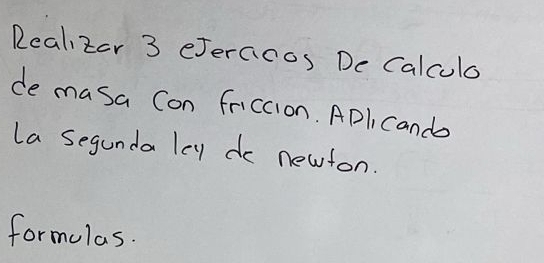 Realizar 3 ejercicios De Calculo
de masa Con friccion. Aplicando
la segunda ley de newton.
formulas.